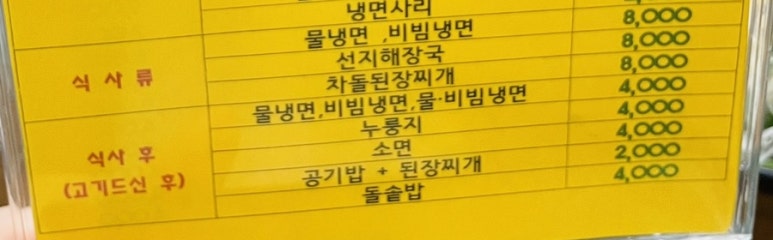 냉면사리
물냉면 ,비빔냉면 8,000
선지해장국 8,000
식 사 류 차돌된장찌개 8,000
물냉면,비빔냉면,물·비빔냉면 4,000
누룽지 4,000
식사 후 소면 4,000
(고기드신 후) 공기밥 + 된장찌개 2,000
돌솥밥 4,000